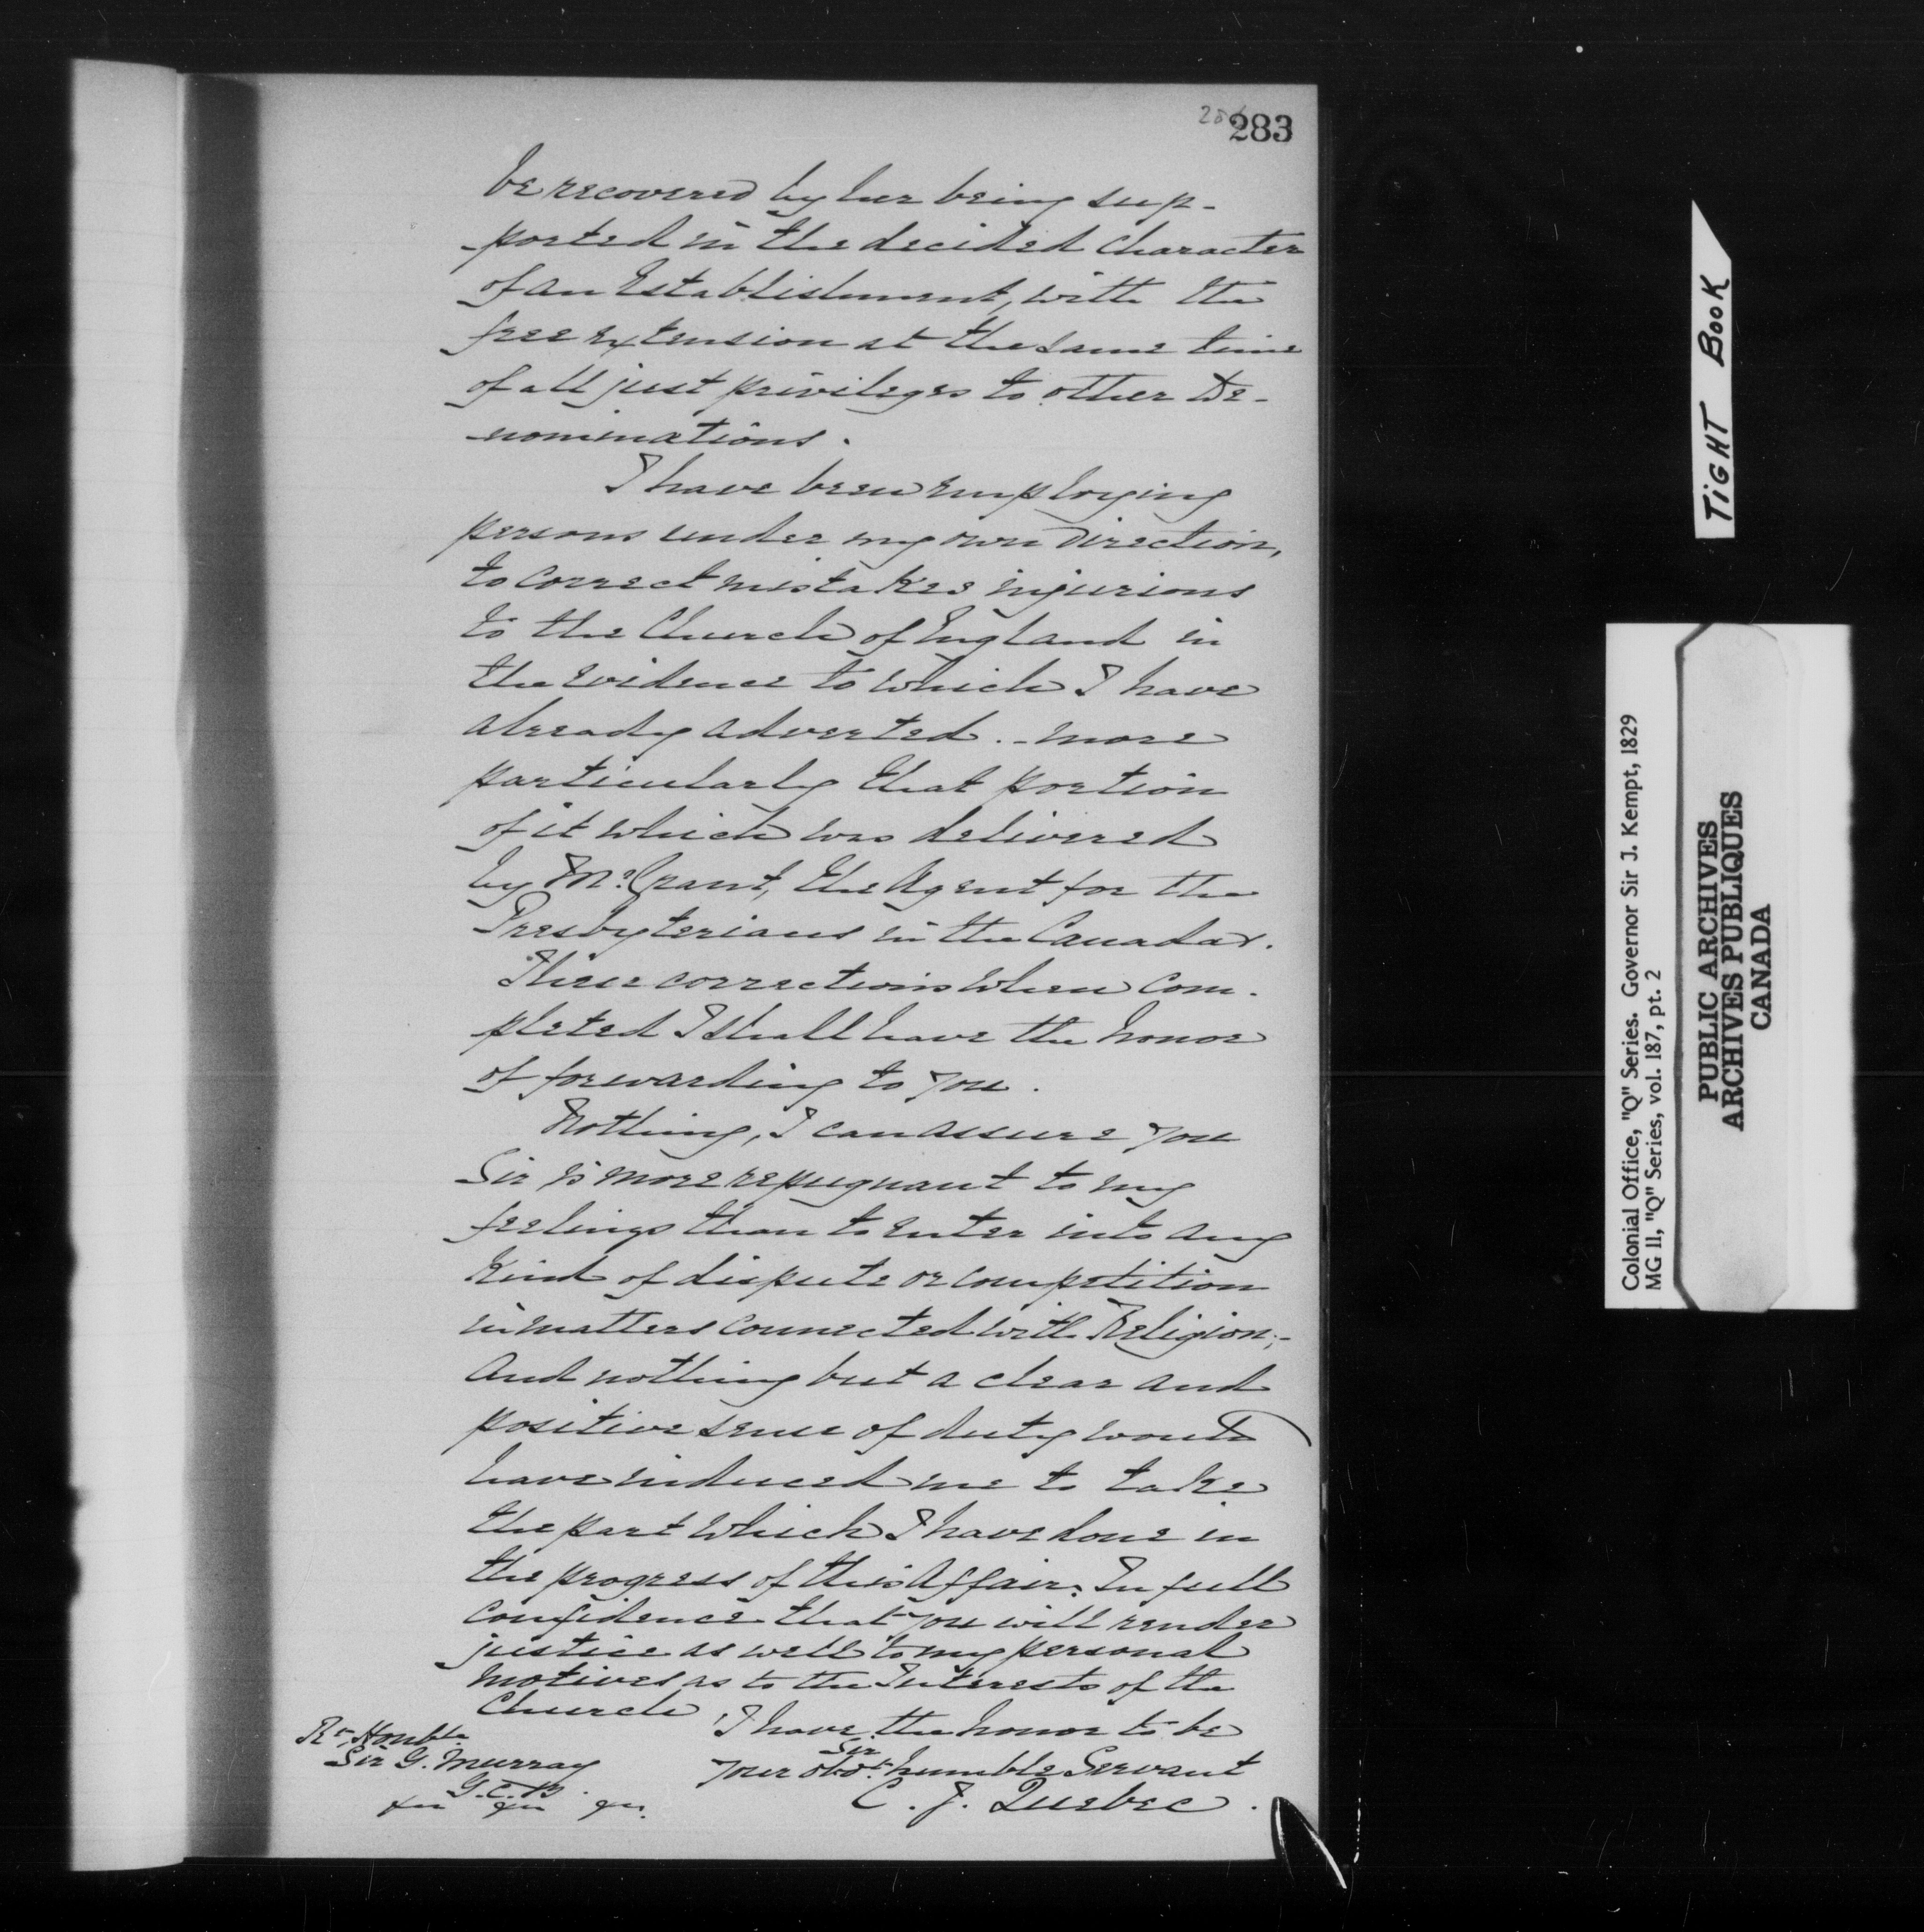 283
be recovered by her being sup-
-ported in the decided character
of an Establishment, with the
free extension at the same time
of all just privileges to other De-
-nominations.
I have been employing
persons under my own Direction,
to correct mistakes injurious
to the Church of England in
the evidence to which I have
already adverted. - more
particularly that portion
of it which was delivered
by Mr. Grant, the Agent for the
Presbyterians in the Canadas.
These corrections when com-
pleted I shall have the honor
of forwarding to you.
Nothing, I can assure you
Sir is more repugnant to my
feelings than to enter into any
kind of dispute or competition
in matters connected with Religion;-
and nothing but a clear and
positive sense of duty would
have induced me to take
the part which I have done in
the progress of this Affair. In full
confidence that you will render
justice as well to my personal
motives as to the Interests of the
Church, I have the honor to be
Sir
your obdt. humble Servant
C. J. Quebec.
Rt. Honble
Sir G. Murray
G.C.B.
TIGHT BOOK
Colonial Office, "Q" Series. Governor Sir J. Kempt, 1829
MG 11, "Q" Series, vol. 187, pt. 2
PUBLIC ARCHIVES
ARCHIVES PUBLIQUES
CANADA